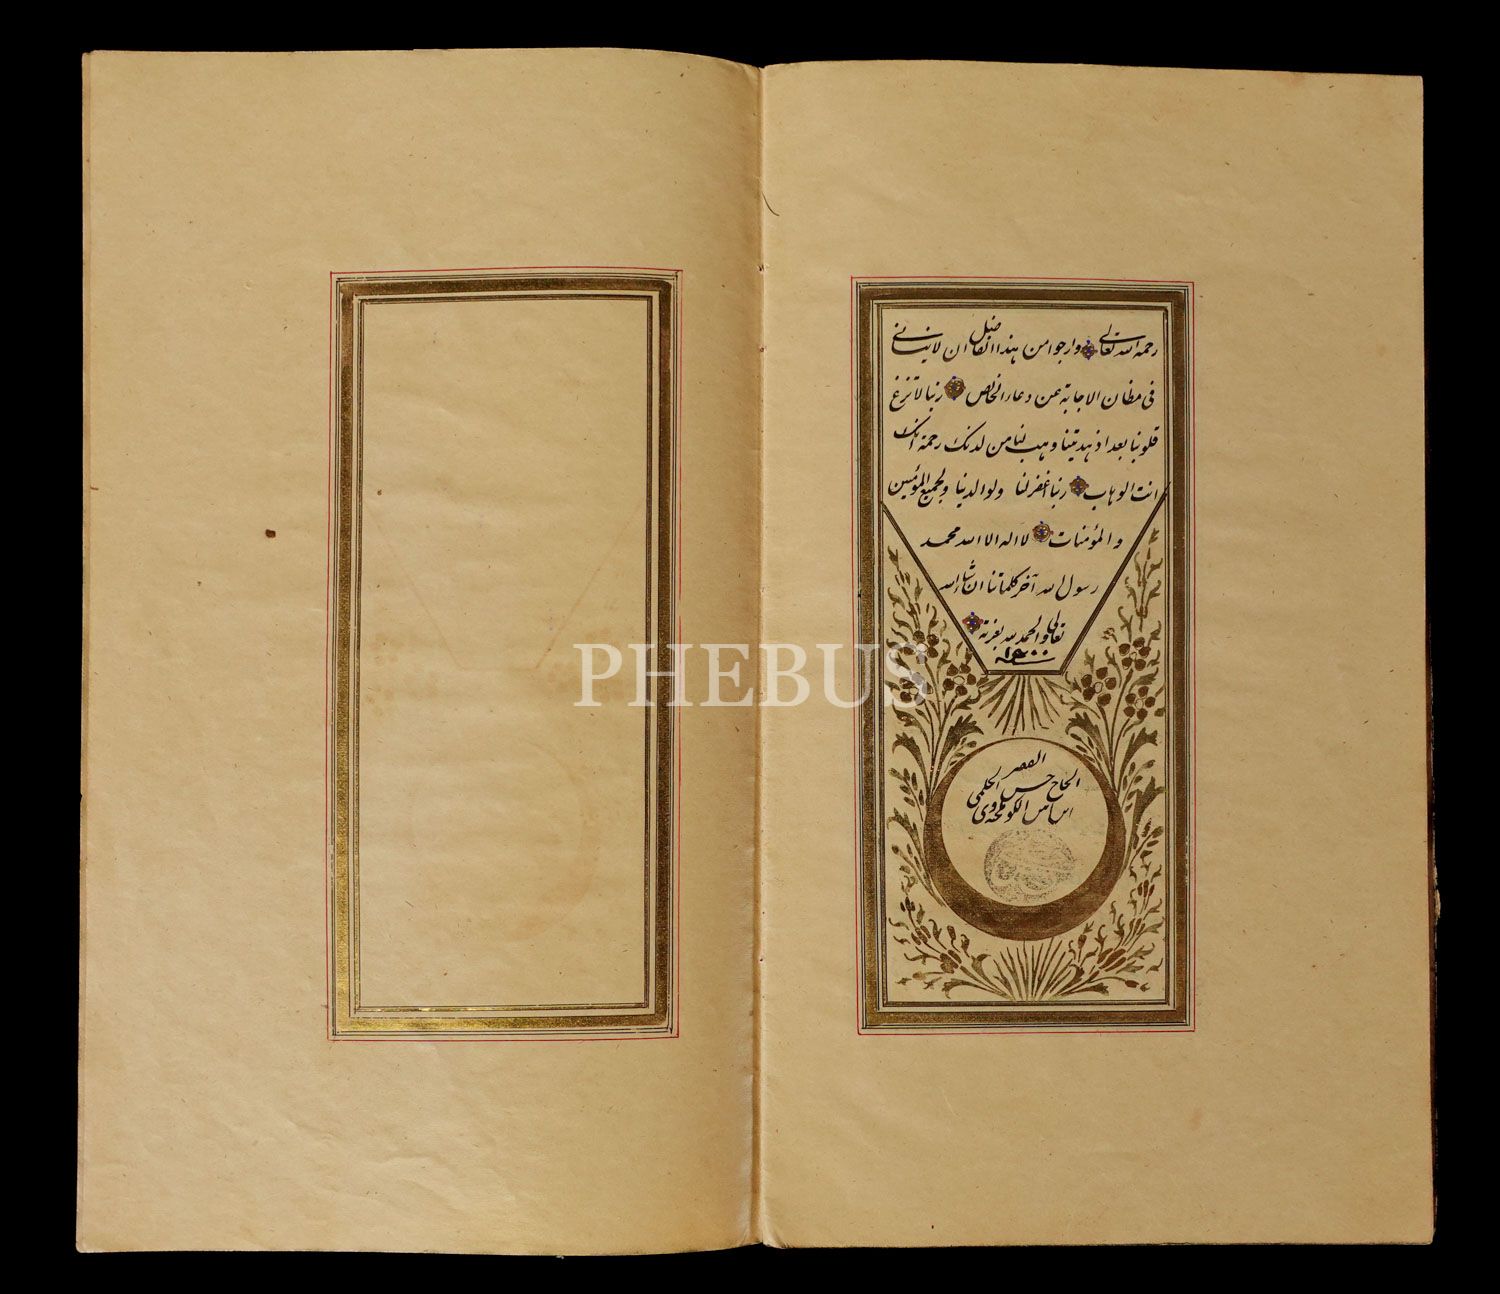 رحمه الله تعالى وارجوا من هذا الفاضل ان لا ينسانى
فى مظان الاجابة عن دعاء الخالص ربنا لا تزغ
قلوبنا بعد اذ هديتنا وهب لنا من لدنك رحمة انك
انت الوهاب ربنا اغفر لنا ولوالدينا ولجميع المؤمنين
والمؤمنات لا اله الا الله محمد
رسول الله آخر كلماتنا ان شاء الله
تعالى والحمد لله
الحاج حسن الحلمى
PHEBUS